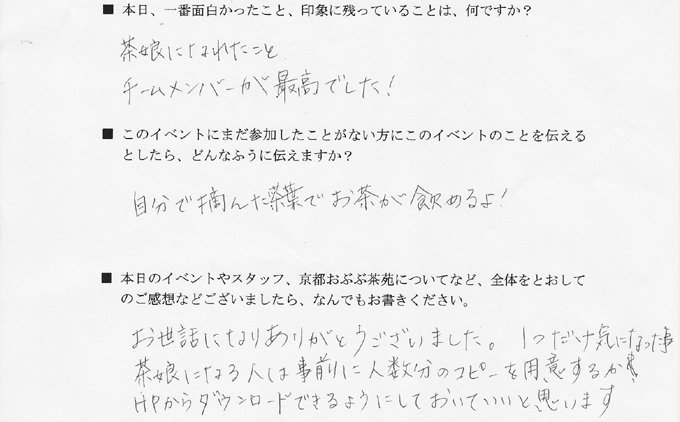 ■ 本日、一番面白かったこと、印象に残っていることは、何ですか？
茶娘になれたこと
チームメンバーが最高でした！
■ このイベントにまだ参加したことがない方にこのイベントのことを伝える
としたら、どんなふうに伝えますか？
自分で摘んだ茶葉でお茶が飲めるよ！
■ 本日のイベントやスタッフ、京都おぶぶ茶苑についてなど、全体をとおして
のご感想などございましたら、なんでもお書きください。
お世話になりありがとうございました。1つだけ気になった事
茶娘になる人は事前に人数分のコピーを用意するか
HPからダウンロードできるようにしておいていいと思います